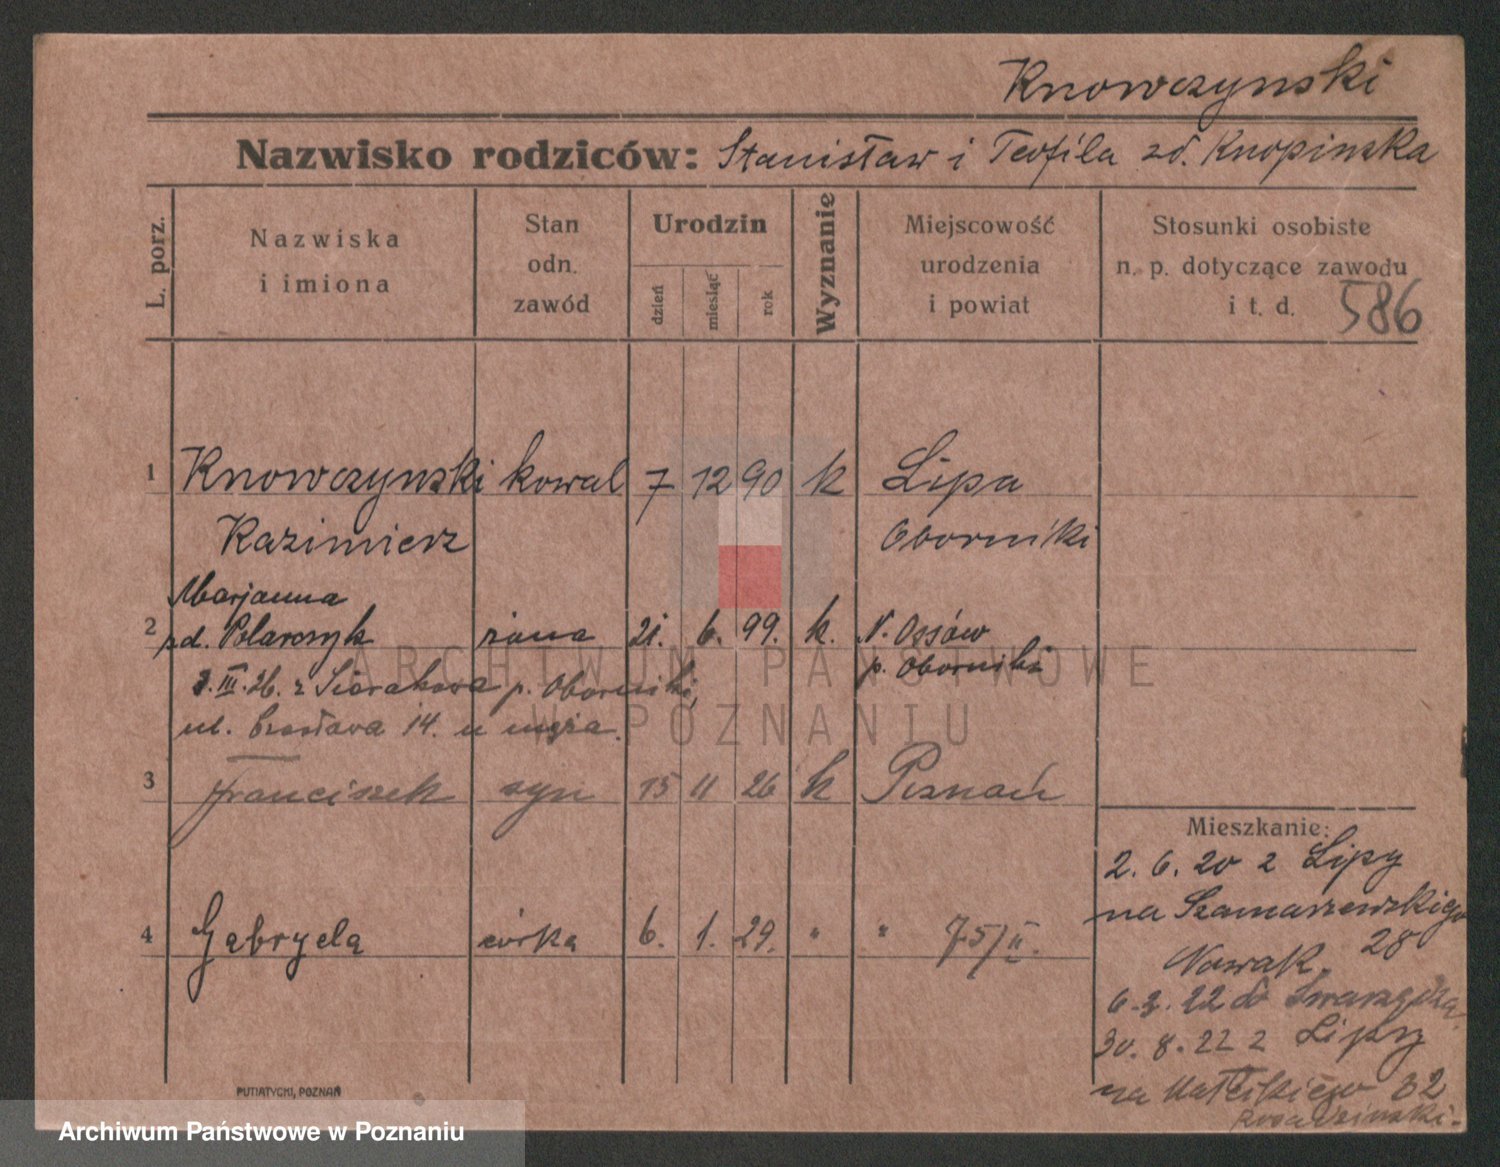 Knowczynski
Nazwisko rodziców: Stanisław i Teofila zd. Knopinska
L. porz.
Nazwiska
i imiona
Stan
odn.
zawód
Urodzin
dzień
miesiąc
rok
Wyznanie
Miejscowość
urodzenia
i powiat
Stosunki osobiste
n. p. dotyczące zawodu
i t. d.
586
1 Knowczynski kowal 7 12 90 k Lipa
Kazimierz Oborniki
Marjanna
2 zd. Polarczyk żona 21. 6. 99. k. N. Ossów
p. Oborniki
III. 26. z p. Oborniki,
ul. 14. u męża.
3 Franciszek syn 15 11 26 k Poznań
4 Gabryela córka 6. 1. 29. " " 75/II.
Mieszkanie:
2. 6. 20 z Lipy
na Szamarzewskiego
28
Nowak
22 do Swarzędza
30. 8. 22 z Lipy
na 32
PUTIATYCKI, POZNAŃ
ARCHIWUM PAŃSTWOWE
W POZNANIU
Archiwum Państwowe w Poznaniu